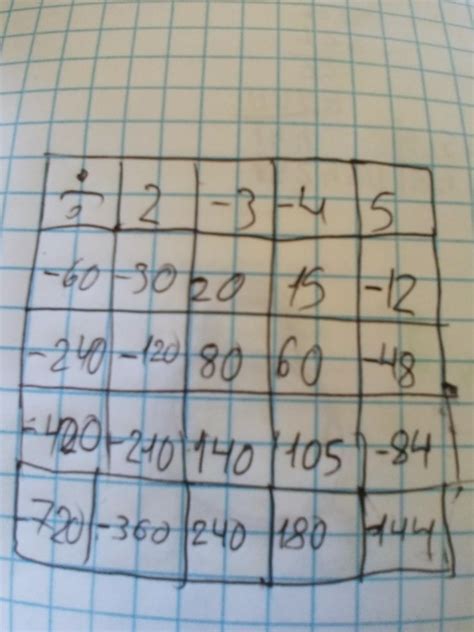 ÷ 2 -3 -4 5
-60 -30 20 15 -12
-240 -120 80 60 -48
-420 -210 140 105 -84
-720 -360 240 180 -144